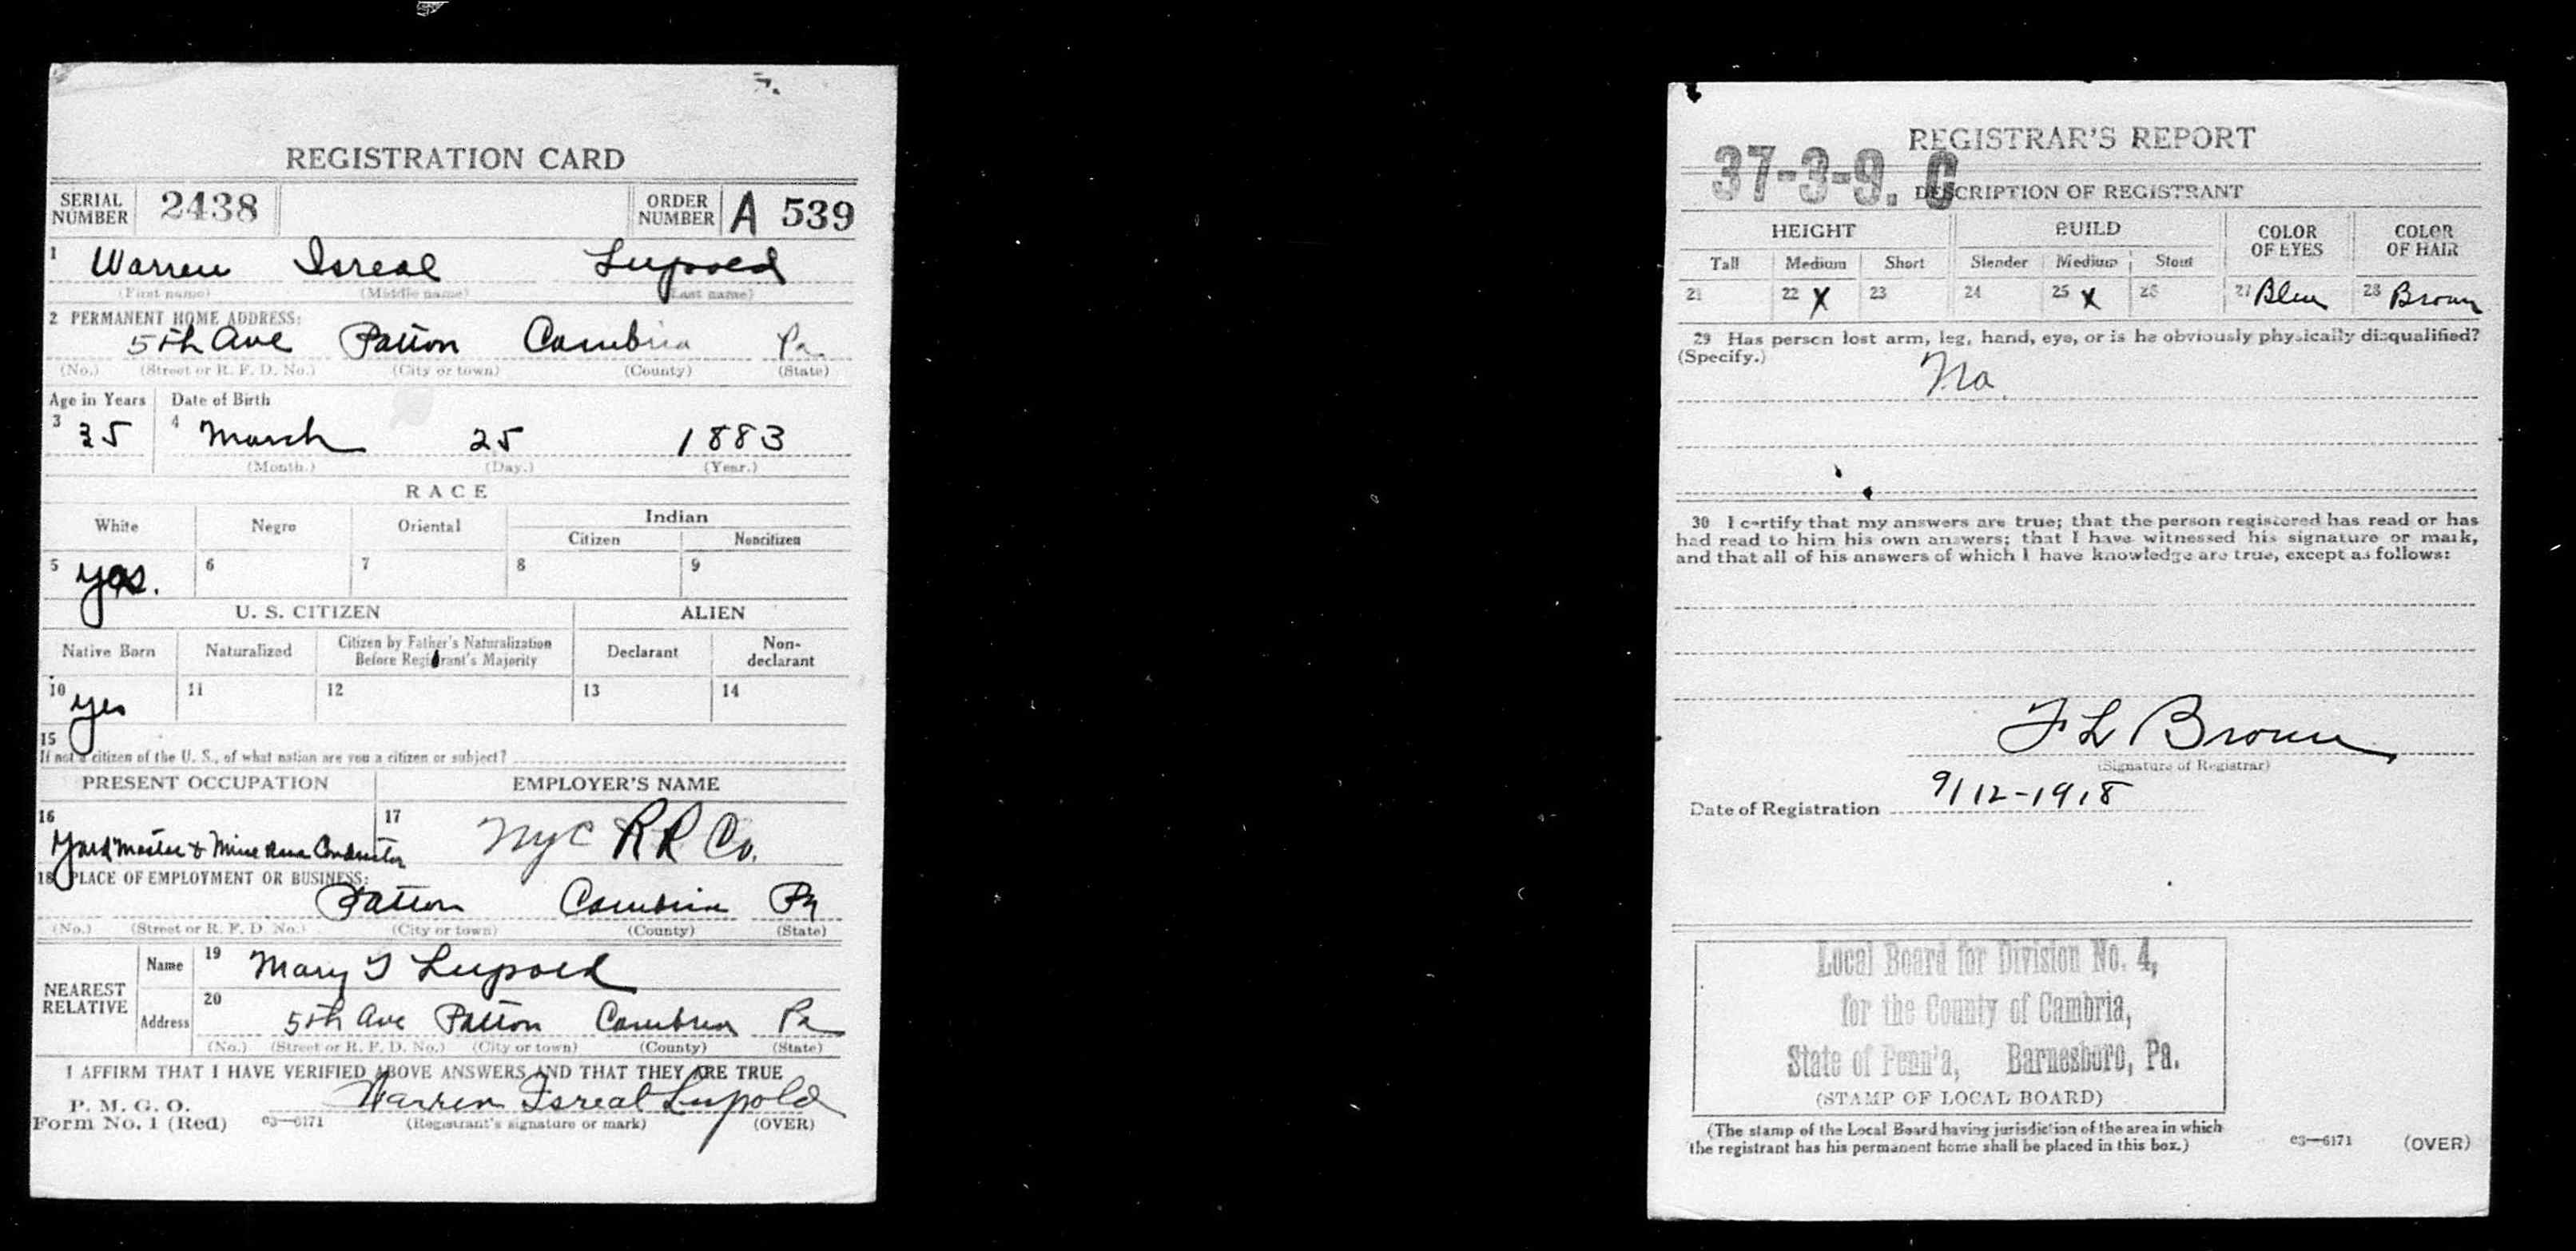 REGISTRATION CARD
SERIAL NUMBER 2438 ORDER NUMBER A 539
1 Warren Isreal Lupold
(First name) (Middle name) (Last name)
2 PERMANENT HOME ADDRESS:
5th Ave Patton Cambria Pa
(No.) (Street or R. F. D. No.) (City or town) (County) (State)
Age in Years Date of Birth
3 35 4 March 25 1883
(Month.) (Day.) (Year.)
RACE
White Negro Oriental Indian
Citizen Noncitizen
5 yes. 6 7 8 9
U. S. CITIZEN ALIEN
Native Born Naturalized Citizen by Father's Naturalization Before Registrant's Majority Declarant Non-declarant
10 yes 11 12 13 14
15
If not a citizen of the U. S., of what nation are you a citizen or subject?
PRESENT OCCUPATION EMPLOYER'S NAME
16 Yard Master & Mine Run Conductor 17 NYC RR Co.
18 PLACE OF EMPLOYMENT OR BUSINESS:
Patton Cambria Pa
(No.) (Street or R. F. D. No.) (City or town) (County) (State)
NEAREST RELATIVE
Name 19 Mary I Lupold
Address 20 5th Ave Patton Cambria Pa
(No.) (Street or R. F. D. No.) (City or town) (County) (State)
I AFFIRM THAT I HAVE VERIFIED ABOVE ANSWERS AND THAT THEY ARE TRUE
P. M. G. O.
Form No. 1 (Red) 03—6171 Warren Isreal Lupold
(Registrant's signature or mark) (OVER)
REGISTRAR'S REPORT
37-3-9. C
DESCRIPTION OF REGISTRANT
HEIGHT BUILD COLOR OF EYES COLOR OF HAIR
Tall Medium Short Slender Medium Stout
21 22 X 23 24 25 X 26 27 Blue 28 Brown
29 Has person lost arm, leg, hand, eye, or is he obviously physically disqualified?
(Specify.) No
30 I certify that my answers are true; that the person registered has read or has
had read to him his own answers; that I have witnessed his signature or mark,
and that all of his answers of which I have knowledge are true, except as follows:
F L Brown
(Signature of Registrar)
Date of Registration 9/12-1918
Local Board for Division No. 4,
for the County of Cambria,
State of Penn'a, Barnesboro, Pa.
(STAMP OF LOCAL BOARD)
(The stamp of the Local Board having jurisdiction of the area in which
the registrant has his permanent home shall be placed in this box.)
03—6171 (OVER)